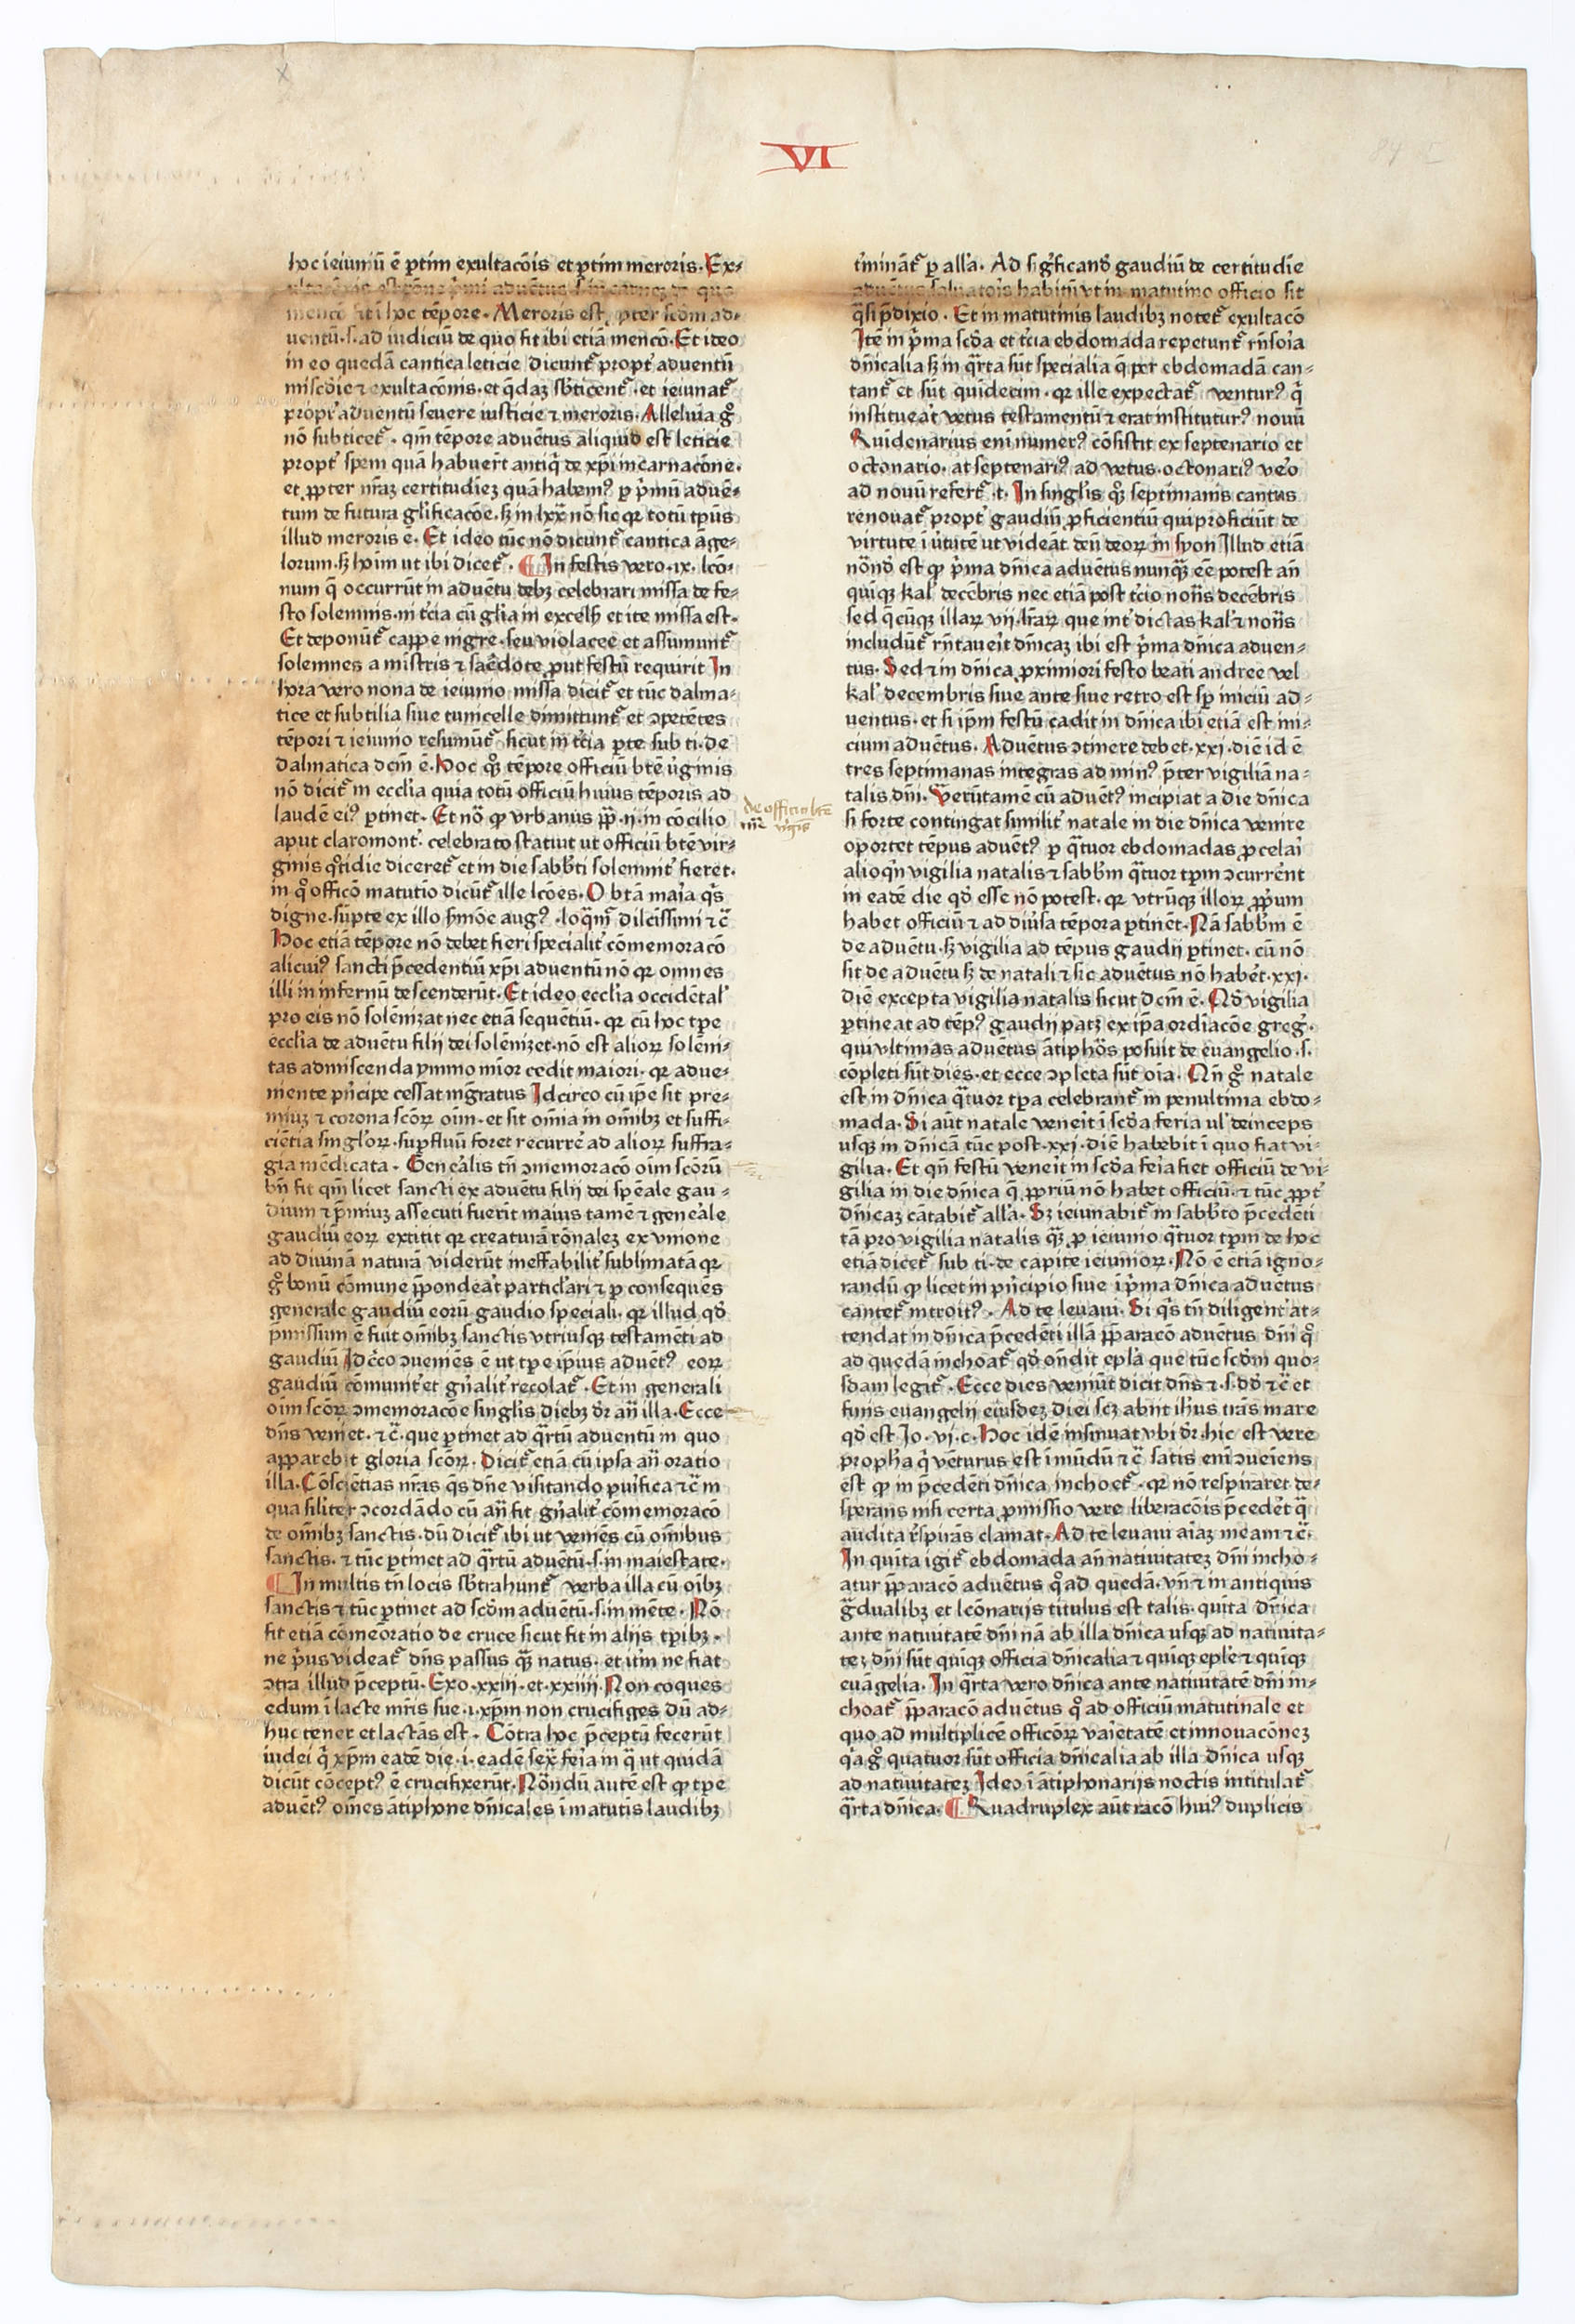 VI
hoc ieiuniū ē ꝑtim exultacōis et ꝑtim meroris. Ex⸗
mencō fit ī hoc tēpore. Meroris est ꝓpter scḋm ad⸗
uentū .s. ad iudiciū de quo fit ibi etiā mencō. Et ideo
in eo quedā cantica leticie dicunt᷑ propt᷑ aduentū
mis̄cdie ⁊ exultacōnis. et q̄daꝫ sb̄ticent᷑. et ieiunat᷑
propt᷑ aduentū seuere iusticie ⁊ meroris. Alleluia gͦ
nō subticet᷑. qm̄ tēpore aduētus aliquid est leticie
propt᷑ spem quā habuer̄t antiq̄ de xp̄i incarnacōne.
et ꝓpter nr̄aꝫ certitudieꝫ quā habemꝰ ꝑ p̄mū aduē⸗
tum de futura gl̄ificacōe. sꝫ in lxx̄ nō sic qꝛ totū tp̄us
illud meroris ē. Et ideo tūc nō dicunt᷑ cantica āge⸗
lorum. sꝫ hoīm ut ibi dicet᷑. ¶ In festis vero .ix. lcō⸗
num q̄ occurrūt in aduētu debꝫ celebrari missa de fe⸗
sto solemnis. in t̄cia cū gl̄ia in excelsꝭ et ite missa est.
Et deponūt᷑ cappe nigre. seu violacee et assumunt᷑
solemnes a mīstris ⁊ sac̄dote ꝓut festū requirit In
hora vero nona de ieiunio missa dicit᷑ et tūc dalma⸗
tice et subtilia siue tunicelle dimittunt᷑ et ꝯpetētes
tēpori ⁊ ieiunio resumūt᷑ sicut in t̄cia ꝑte sub ti. de
dalmatica dcm̄ ē. Hoc qͦꝫ tēpore officiū btē v̄ginis
nō dicit᷑ in eccl̄ia quia totū officiū huius tēporis ad
laudē eiꝰ ꝑtinet. Et nō ꝙ vrbanus pp̄ .ij. in cōcilio
aput claromont᷑. celebrato statuit ut officiū btē vir⸗
ginis qͦtidie diceret᷑ et in die sabb̄ti solemnit᷑ fieret.
in qͦ officō matutīo dicūt᷑ ille lcōes. O btā maīa q̄s
digne. sūpte ex illo s̄mōe augꝰ. loq̄mr̄ dilcissimi ⁊ c̄
Hoc etiā tēpore nō debet fieri specialit᷑ cōmemoracō
alicuiꝰ sancti p̄cedentiū xp̄i aduentū nō qꝛ omnes
illi in infernū descenderūt. Et ideo eccl̄ia occidētal᷑
pro eis nō solēnizat nec etiā sequētiū. qꝛ cū hoc tpe
eccl̄ia de aduētu filij dei solēnizet. nō est alioꝝ solēni⸗
tas admiscenda ymmo mīor cedit maiori. qꝛ adue⸗
niente p̄ncipe cessat mḡratus Idcirco cū ip̄e sit pre⸗
miuꝫ ⁊ corona scōꝝ oīm. et sit omīa in omībꝫ et suffi⸗
ciētia singl̄oꝝ. suꝑfluū foret recurrē ad alioꝝ suffra⸗
gia mēdicata. Gen̄alis tn̄ ꝯmemoracō oīm scōrū
bn̄ fit qm̄ licet sancti ex aduētu filij dei spēale gau⸗
dium ⁊ p̄miuꝫ assecuti fuerīt maius tamē ⁊ gen̄ale
gaudiū eoꝝ extitit qꝛ creaturā rōnaleꝫ ex vnione
ad diuinā naturā viderūt ineffabilit᷑ sublimatā qꝛ
gͦ bonū cōmune pp̄ondeāt particl̄ari ⁊ ꝑ consequēs
generale gaudiū eorū gaudio speciali. qꝛ illud qḋ
p̄missum ē fuit omībꝫ sanctis vtriusqꝫ testamēti ad
gaudiū Idc̄co ꝯueniēs ē ut tpe ip̄ius aduētꝰ eoꝝ
gaudiū cōmunit᷑ et gn̄alit᷑ recolat᷑. Et in generali
oīm scōꝝ ꝯmemoracōe singl̄is diebꝫ dr̄ an̄ illa. Ecce
dn̄s veniet. ⁊ c̄. que ꝑtinet ad q̄rtū aduentū in quo
apparebit gloria scōꝝ. Dicit᷑ etiā cū ipsa an̄ oratio
illa. Cōsciētias nr̄as q̄s dn̄e visitando puīfica ⁊ c̄ in
qua sīlit᷑er ꝯcordādo cū an̄ fit gn̄alit᷑ cōmemoracō
de omībꝫ sanctis. dū dicit᷑ ibi ut veniēs cū omībus
sanctis. ⁊ tūc ꝑtinet ad q̄rtū aduētū .s. in maiestate.
¶ In multis tn̄ locis sb̄trahunt᷑ verba illa cū oībꝫ
sanctis ⁊ tūc ꝑtinet ad scḋm aduētū .s. in mēte. Nō
fit etiā cōmeōratio de cruce sicut fit in alijs tꝑibꝫ.
ne p̄us videat᷑ dn̄s passus q̄ꝫ natus. et itīm ne fiat
ꝯtra illud p̄ceptū. Exo. xxiij. et. xxiiij. Non coques
edum ī lacte mr̄is sue .i. xp̄m non crucifiges dū ad⸗
huc tener et lactās est. Cōtra hoc p̄ceptū fecerūt
iudei q̄ xp̄m eadē die .i. eadē sex̄ feīa in q̄ ut quidā
dicūt cōceptꝰ ē crucifixerūt. Nōndū autē est ꝙ tpe
aduētꝰ oīnes ātiphone dn̄icales ī matutīs laudibꝫ
de officio btē
mr̄ie v̄gis
t̄mināt᷑ ꝑ all̄a. Ad sigͥficandꝰ gaudiū de certitudīe
aduētus saluatoīs habitū vt in matutino officio sit
q̄si p̄dixio. Et in matutinis laudibꝫ notet᷑ exultacō
Itē in p̄ma scḋa et t̄cia ebdomada repetunt᷑ rn̄soīa
dn̄icalia sꝫ in q̄rta sūt specialia q̄ per ebdomadā can⸗
tant᷑ et sūt quīdecim. qꝛ ille expectat᷑ venturꝰ q̄
institueāt vetus testamentū ⁊ erat institutur̄ꝰ nouū
Quidenarius eni numerꝰ cōsistit ex septenario et
octonario. at septenariꝰ ad vetus. octonariꝰ veo
ad nouū refert᷑ .t. In singl̄is qͦꝫ septimanis cantus
renouat᷑ propt᷑ gaudiū ꝓficientiū qui proficiūt de
virtute ī v̄tutē ut videāt deū deoꝝ in syon Illud etiā
nōndꝰ est ꝙ p̄ma dn̄ica aduētus nunq̄ꝫ eē potest an̄
quīqꝫ kal᷑ decēbris nec etiā post t̄cio non̄s decēbris
sed q̄cūqꝫ illaꝝ vij. lr̄aꝝ que int᷑ dictas kal᷑ ⁊ non̄s
includūt᷑ rn̄taueīt dn̄icaꝫ ibi est p̄ma dn̄ica aduen⸗
tus. Sed ⁊ in dn̄ica ꝓximiori festo beati andree vel
kal᷑ decembris siue ante siue retro est sp̄ iniciū ad⸗
uentus. et si ip̄m festū cadit in dn̄ica ibi etiā est ini⸗
cium aduētus. Aduētus ꝯtinere debet .xxi. diē id ē
tres septimanas integras ad minꝰ p̄ter vigiliā na⸗
talis dn̄i. Verūtamē cū aduētꝰ incipiat a die dn̄ica
si forte contingat similit᷑ natale in die dn̄ica venire
oportet tēpus aduētꝰ ꝑ q̄tuor ebdomadas ꝓcelaī
alioqn̄ vigilia natalis ⁊ sabb̄m q̄tuor tꝑm ꝯcurrēnt
in eadē die qḋ esse nō potest. qꝛ vtrūqꝫ illoꝝ ꝓpͥum
habet officiū ⁊ ad diūsa tēpora ꝑtinēt. Nā sabb̄m ē
de aduētu. sꝫ vigilia ad tēpus gaudij ꝑtinet. cū nō
sit de aduētu sꝫ de natali ⁊ sic aduētus nō habēt .xxi.
diē excepta vigilia natalis sicut dcm̄ ē. Qḋ vigilia
ꝑtineat ad tēpꝰ gaudij patꝫ ex ip̄a ordīacōe greg᷑.
qui vltimas aduētus ātiphōs posuit de euangelio .s.
cōpleti sūt dies. et ecce ꝯpleta sūt oīa. Qn̄ gͦ natale
est in dn̄ica q̄tuor tꝑa celebrant᷑ in penultima ebdo⸗
mada. Si aūt natale veneīt ī scḋa feria ul᷑ deinceps
usqꝫ in dn̄icā tūc post .xxi. diē habebit ī quo fiat vi⸗
gilia. Et qn̄ festū veneīt in scḋa feīa fiet officiū de vi⸗
gilia in die dn̄ica q̄ ꝓpriū nō habet officiū. ⁊ tūc ꝓpt᷑
dn̄icaꝫ cātabit᷑ all̄a. Sꝫ ieiunabit᷑ in sabb̄to p̄cedēti
tā pro vigilia natalis q̄ꝫ ꝓ ieiunio q̄tuor tꝑm de hoc
etiā dicet᷑ sub ti. de capite ieiunioꝝ. Nō ē etiā igno⸗
randū ꝙ licet in p̄ncipio siue ī p̄ma dn̄ica aduētus
cantet᷑ introitꝰ. Ad te leuaui. Si q̄s tn̄ diligent᷑ at⸗
tendat in dn̄ica p̄cedēti illā pp̄aracō aduētus dn̄i qͦ
ad quedā inchoat᷑ qḋ on̄dit epl̄a que tūc scḋm quo⸗
sdam legit᷑. Ecce dies veniūt dicit dn̄s ⁊ .s. dd̄ ⁊ c̄ et
finis euangelij eiusdeꝫ diei scꝫ abijt ih̄us tr̄as mare
qḋ est Io. vj. c. Hoc idē insinuat vbi dr̄. hic est vere
propha q̄ vēturus est ī mūdū ⁊ c̄ satis eni ꝯueniens
est ꝙ in p̄cedēti dn̄ica inchoet᷑. qꝛ nō respiraret de⸗
sperans nisi certa ꝓmissio vere liberacōis p̄cedēt q̄
audita r̄spirās clamat. Ad te leuaui aīaꝫ meam ⁊ c̄.
In quīta igit᷑ ebdomada an̄ natiuitateꝫ dn̄i incho⸗
atur pp̄aracō aduētus qͦ ad quedā. vn̄ ⁊ in antiquis
ḡdualibꝫ et lcōnarijs titulus est talis. quīta dn̄ica
ante natiuitatē dn̄i nā ab illa dn̄ica usqꝫ ad natiuita⸗
teꝫ dn̄i sūt quīqꝫ officia dn̄icalia ⁊ quīqꝫ epl̄e ⁊ quīqꝫ
euāgelia. In q̄rta vero dn̄ica ante natiuitatē dn̄i in⸗
choat᷑ pp̄aracō aduētus qͦ ad officiū matutinale et
quo ad multiplicē officōꝝ vaīetatē et innouacōneꝫ
q̄a gͦ quatuor sūt officia dn̄icalia ab illa dn̄ica usqꝫ
ad natiuitateꝫ Ideo ī ātiphonarijs noctīs intitulat᷑
q̄rta dn̄ica. ¶ Quadruplex aūt racō huiꝰ duplicis